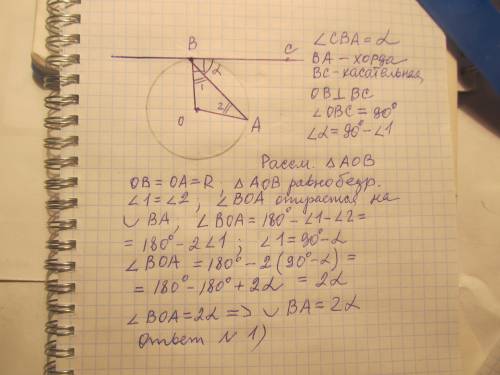 B
C
α
1
2
O
A
∠CBA = α
BA – хорда
BC – касательная
OB⊥BC
∠OBC = 90°
∠α = 90° – ∠1
Рассм. △AOB
OB = OA = R, △AOB равнобедр.
∠1 = ∠2, ∠BOA опирается на
◡ BA, ∠BOA = 180° – ∠1 – ∠2 =
= 180° – 2∠1; ∠1 = 90° – α
∠BOA = 180° – 2(90° – α) =
= 180° – 180° + 2α = 2α
∠BOA = 2α => ◡ BA = 2α
Ответ N 1)